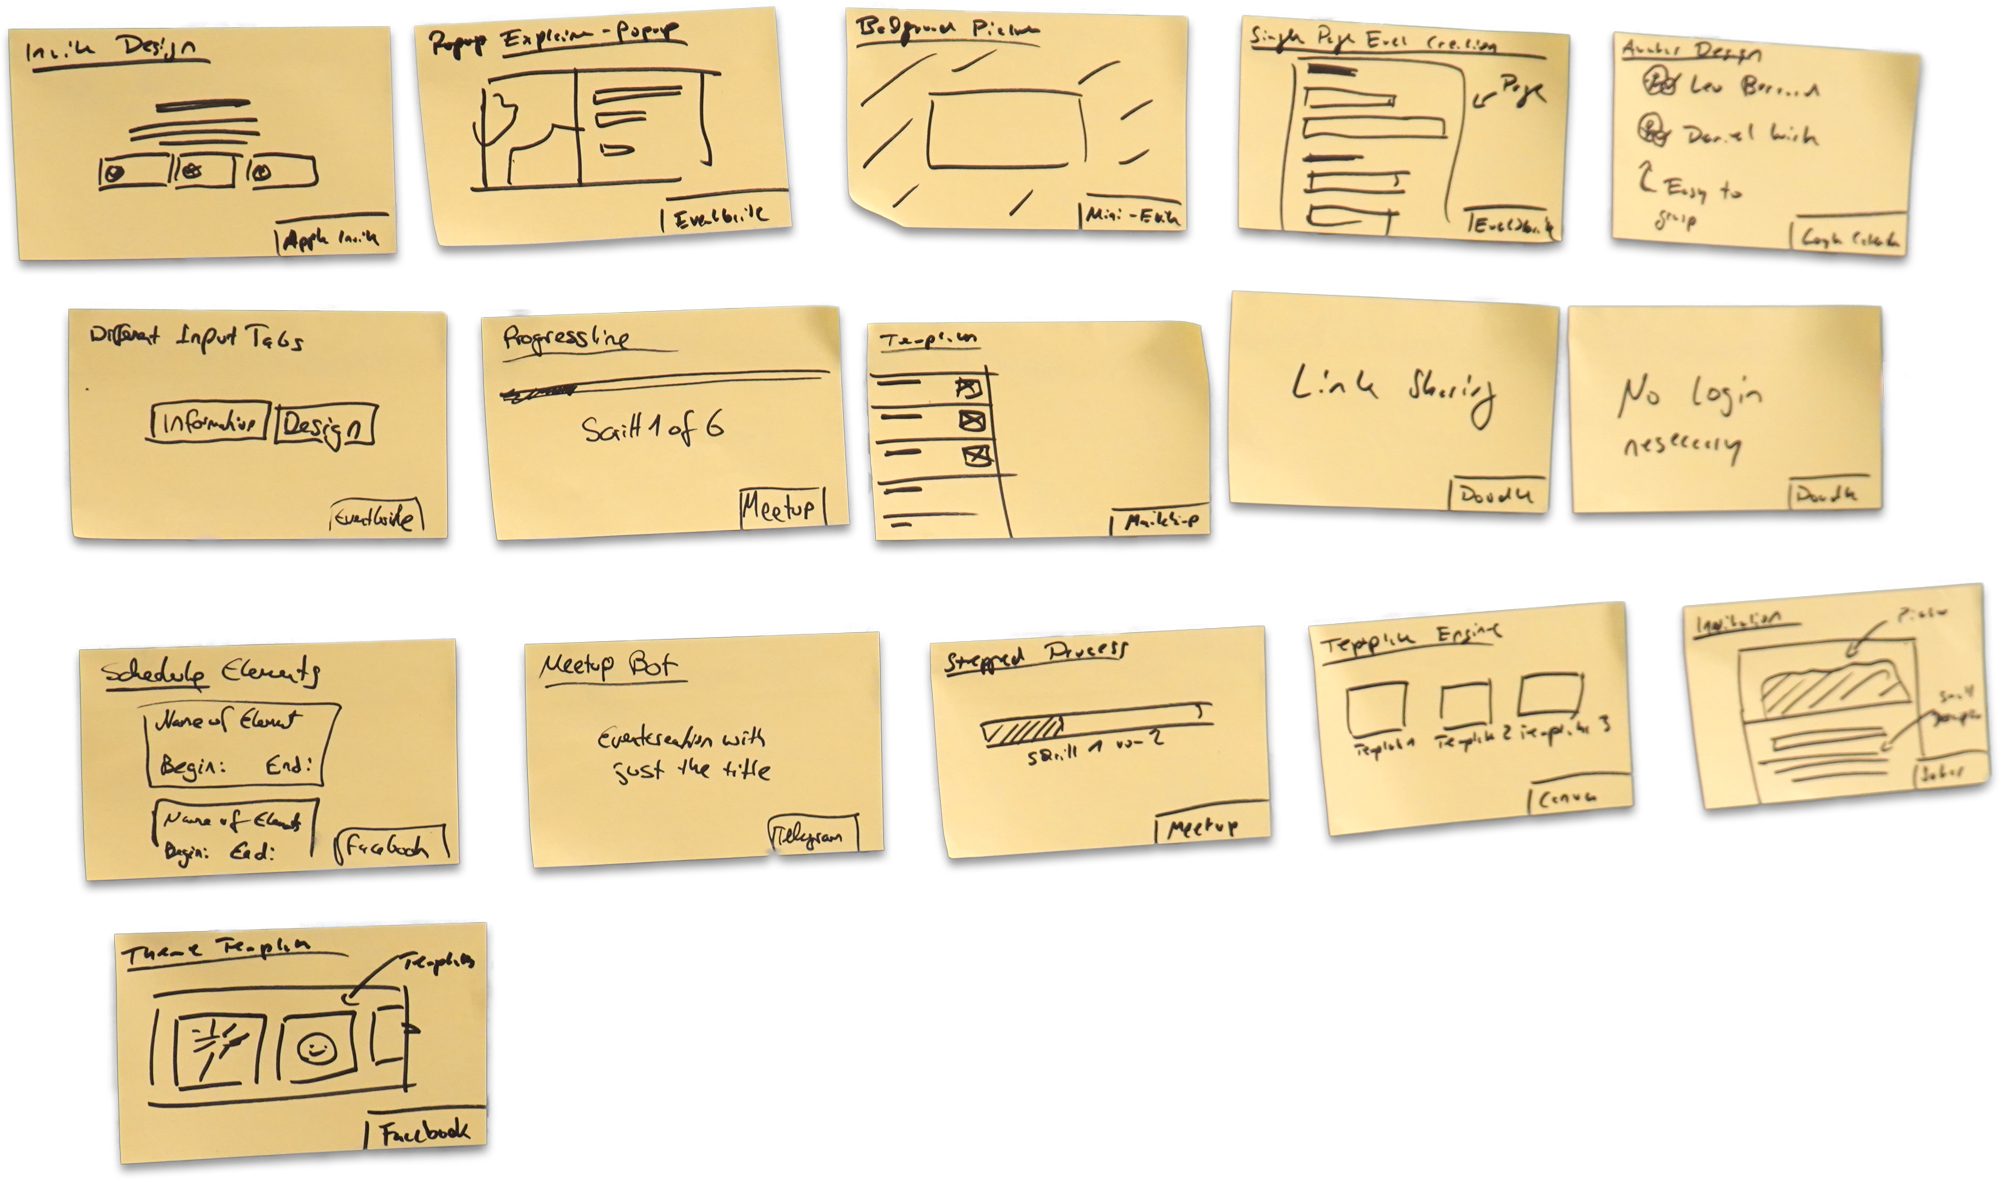 Invite Design
Apple Invite
Popup Explain-Popup
Eventbrite
Background Picture
Mini-Evite
Single Page Event Creation
Page
Eventbrite
Avatar Design
Leo
Daniel
Easy to
grasp
Different Input Tabs
Information
Design
Eventbrite
Progressline
Schritt 1 of 6
Meetup
Templates
Mailchimp
Link Sharing
Doodle
No login
nesececrly
Doodle
Schedule Elements
Name of Element
Begin: End:
Name of Element
Begin: End:
Facebook
Meetup Bot
Eventcreation with
just the title
Telegram
Stepped Process
Schritt 1 von 2
Meetup
Template Engine
Template 1 Template 2 Template 3
Canva
Invitation
Picture
Theme Template
Templates
Facebook